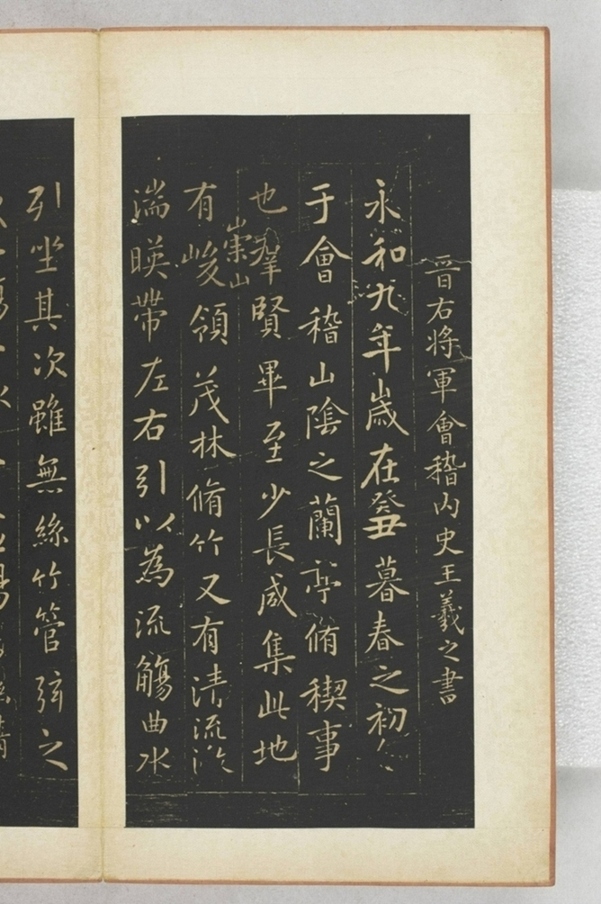 晉右將軍會稽內史王羲之書
永和九年歲在癸丑暮春之初
于會稽山陰之蘭亭脩稧事
也羣賢畢至少長咸集此地
有崇山峻領茂林脩竹又有清流激
湍暎帶左右引以為流觴曲水
引坐其次雖無絲竹管弦之